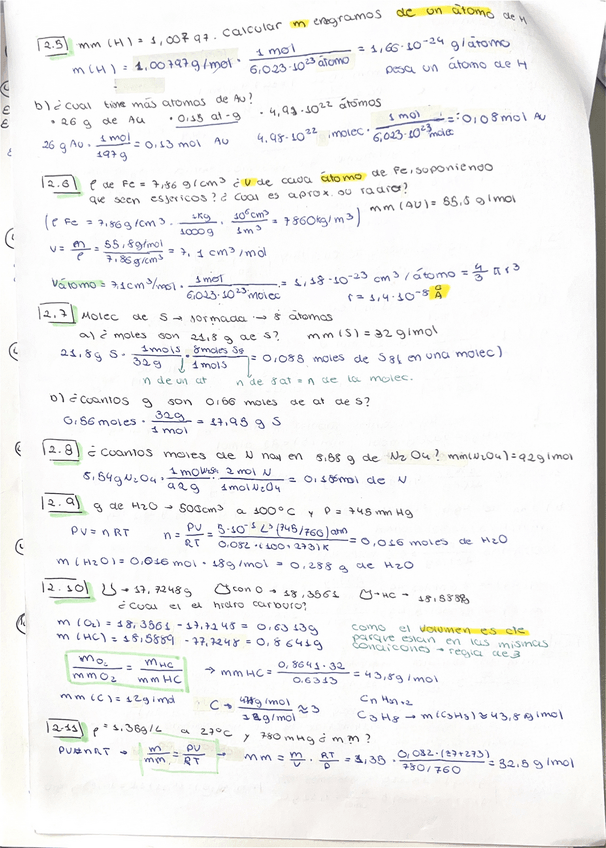 2.5 mm (H) = 1,00797. Calcular m en gramos de un átomo de H
m (H) = 1,00797 g/mol · 1 mol / 6,023·10²³ átomo = 1,66·10⁻²⁴ g/átomo
pesa un átomo de H
b) ¿Cual tiene más atomos de Au?
· 26 g de Au · 0,15 at-g · 4,98·10²² átomos
26 g Au · 1 mol / 197 g = 0,13 mol Au 4,98·10²² molec · 1 mol / 6,023·10²³ molec = 0,08 mol Au
2.6 ρ de Fe = 7,86 g/cm³ ¿V de cada átomo de Fe, suponiendo
que seen esfericos? ¿cual es aprox. su radio?
(ρ Fe = 7,86 g/cm³ · 1Kg / 1000g · 10⁶ cm³ / 1m³ = 7860 kg/m³) mm (AU) = 55,8 g/mol
V = m / ρ = 55,8 g/mol / 7,86 g/cm³ = 7,1 cm³/mol
Vátomo = 7,1 cm³/mol · 1 mol / 6,023·10²³ molec = 1,18·10⁻²³ cm³ / átomo = 4/3 π r³
r = 1,4·10⁻⁸ Å
2.7 Molec de S → formada → 8 átomos
a) ¿ moles son 21,8 g de S? mm (S) = 32 g/mol
21,8 g S · 1 mol S / 32 g · 8 moles S8 / 1 mol S = 0,085 moles de S8 (en una molec)
n de un at n de 8 at = n de la molec.
b) ¿Cuantos g son 0,56 moles de at de S?
0,56 moles · 32 g / 1 mol = 17,95 g S
2.8 ¿ Cuantos moles de N hay en 8,58 g de N₂O₄? mm(N₂O₄) = 92 g/mol
8,54 g N₂O₄ · 1 mol / 92 g · 2 mol N / 1 mol N₂O₄ = 0,185 mol de N
2.9 g de H2O → 500 cm³ a 100°C y P = 745 mmHg
PV = n RT n = PV / RT = 5·10⁻¹ L (745/760) atm / 0,082 · (100 + 273) K = 0,016 moles de H₂O
m (H₂O) = 0,016 mol · 18 g/mol = 0,288 g de H₂O
2.10 → 17,7248 g con O → 18,3561 HC → 18,5889 g
¿cual es el hidro carburo?
m (O₂) = 18,3561 - 17,7248 = 0,6313 g
m (HC) = 18,5889 - 17,7248 = 0,8641 g
como el volumen es cte
porque estan en las mismas
condiciones → regla de 3
m O₂ / mm O₂ = m HC / mm HC → mm HC = 0,8641 · 32 / 0,6313 = 43,8 g/mol
mm (C) = 12 g/mol C → g/mol / 12 g/mol ≈ 3 Cn H2n+2
C₃ H₈ → m (C₃H₈) ≈ 43,8 g/mol
2.11 ρ = 1.35 g/L a 27°C y 780 mmHg ¿ mm ?
PV = nRT → m / mm = PV / RT → mm = m / V · RT / P = 1,35 · 0,082 · (27+273) / 780/760 = 32,5 g/mol